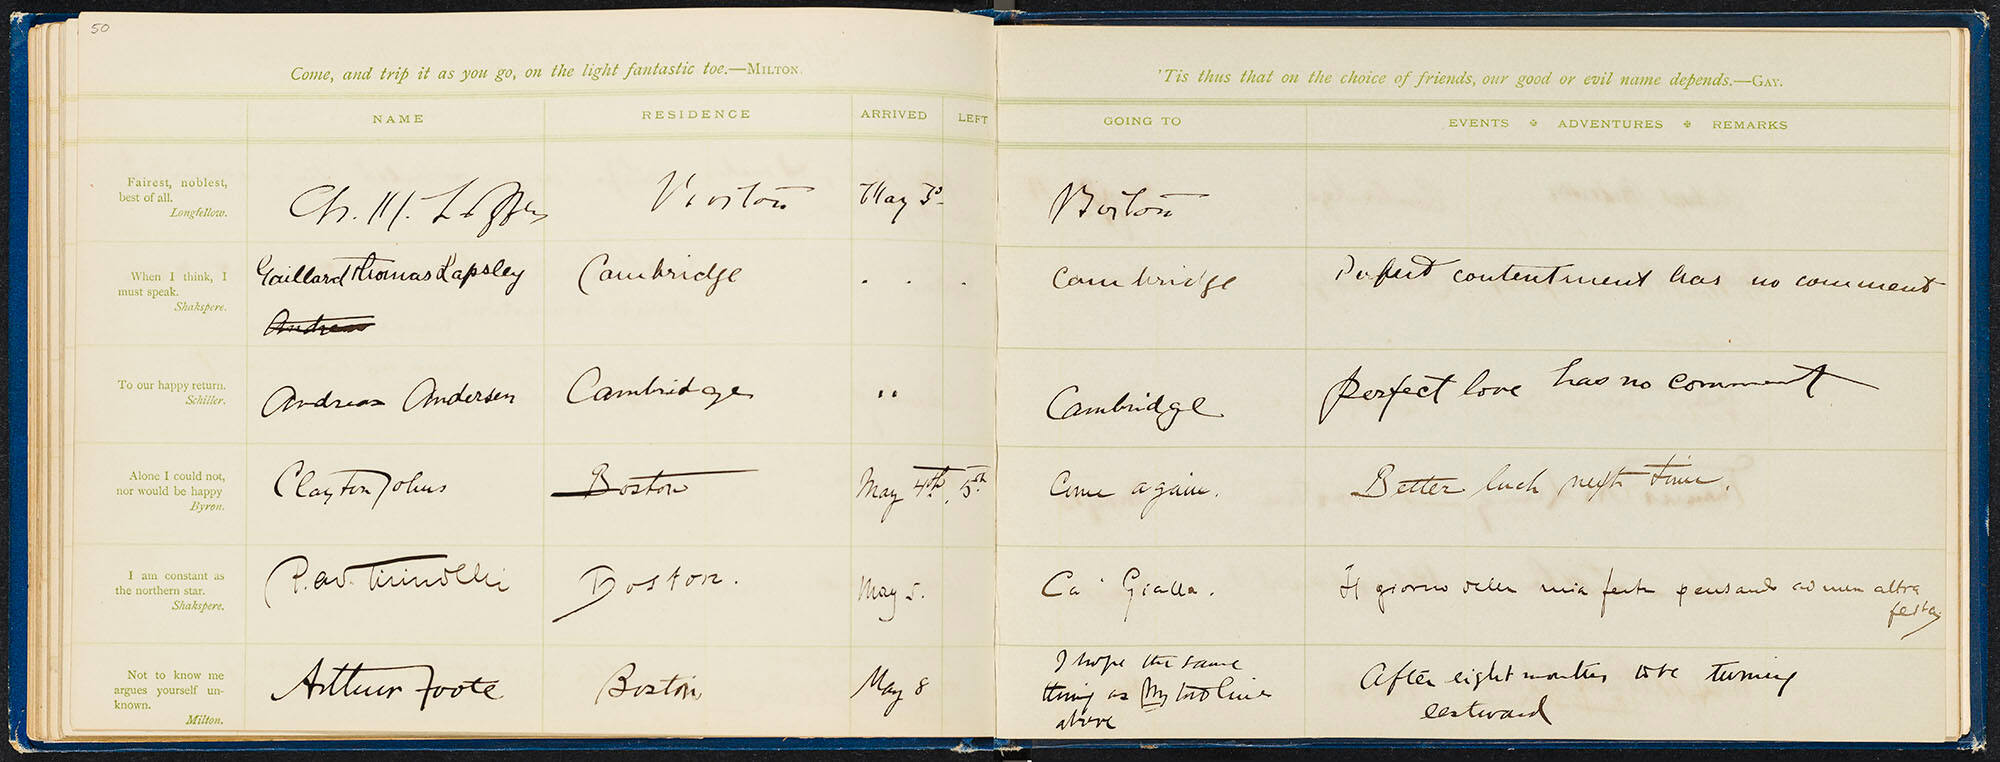 50
Come, and trip it as you go, on the light fantastic toe.—MILTON.
'Tis thus that on the choice of friends, our good or evil name depends.—GAY.
NAME RESIDENCE ARRIVED LEFT GOING TO EVENTS ✤ ADVENTURES ✤ REMARKS
Fairest, noblest,
best of all.
Longfellow.
Ch. M. Loeffler Boston May 3d Boston
When I think, I
must speak.
Shakspere.
Gaillard Thomas Lapsley Cambridge . . . Cambridge Perfect contentment has no comment
Andreas
To our happy return.
Schiller.
Andreas Andersen Cambridge " Cambridge Perfect love has no comment
Alone I could not,
nor would be happy
Byron.
Clayton Johns Boston May 4th, 5th Come again. Better luck next time.
I am constant as
the northern star.
Shakspere.
Boston. May 5. Ca' Gialla. Il giorno della mia festa pensando ad un altra
festa
Not to know me
argues yourself un-
known.
Milton.
Arthur Foote Boston May 8
I hope the same
thing as my
above
After eight months to be turning
eastward